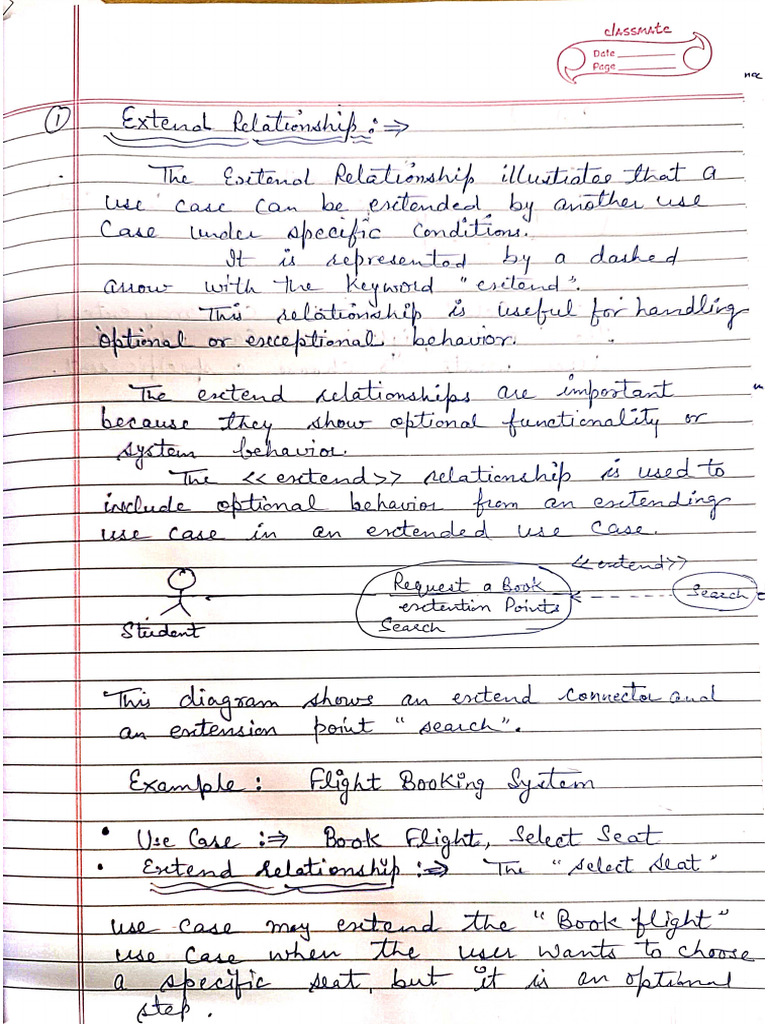 classmate
Date
Page
① Extend Relationship :⇒
The Extend Relationship illustrates that a
use case can be extended by another use
case under specific conditions.
It is represented by a dashed
arrow with the keyword "extend".
This relationship is useful for handling
optional or exceptional behavior.
The extend relationships are important
because they show optional functionality or
system behavior.
The <<extend>> relationship is used to
include optional behavior from an extending
use case in an extended use case.
<<extend>>
Request a Book
extention Points
Search
Search
Student
This diagram shows an extend connector and
an extension point "search".
Example : Flight Booking System
• Use Case :⇒ Book Flight, Select Seat
• Extend Relationship :⇒ The "select seat"
use case may extend the "Book flight"
use case when the user wants to choose
a specific seat, but it is an optional
step.